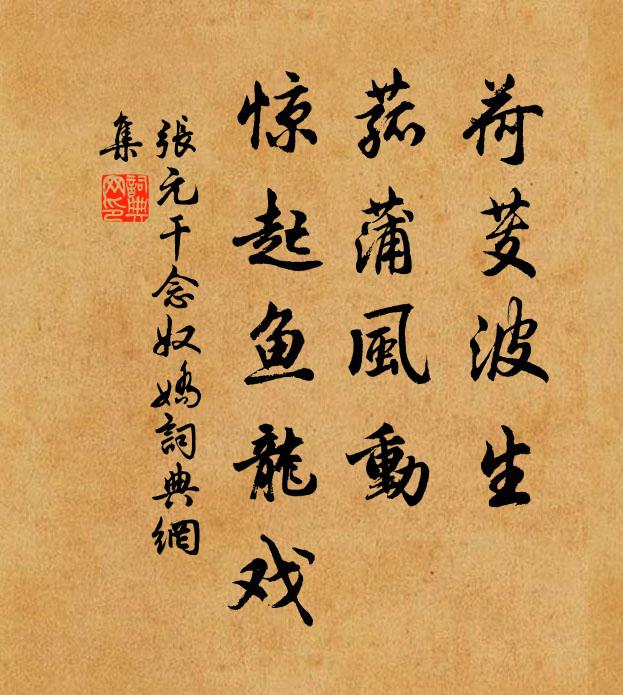 荷芰波生
菰蒲風動
惊起鱼龍戏
張元干念奴嬌詞典網
集
詞典
网印